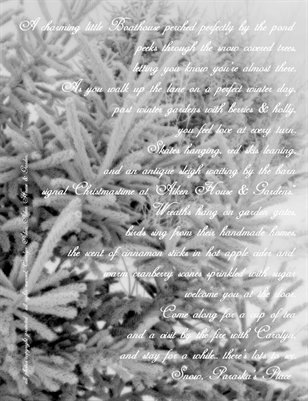 A charming little Boathouse perched perfectly by the pond
peeks through the snow covered trees,
letting you know you're almost there.
As you walk up the lane on a perfect winter day,
past winter gardens with berries & holly,
you feel love at every turn.
Skates hanging, red skis leaning,
and an antique sleigh waiting by the barn
signal Christmastime at Aiken House & Gardens.
Wreaths hang on garden gates,
birds sing from their handmade homes,
the scent of cinnamon sticks in hot apple cider and
warm cranberry scones sprinkled with sugar
welcome you at the door.
Come along for a cup of tea
and a visit by the fire with Carolyn,
and stay for a while... there's lots to see
Snow, Paraska's Place